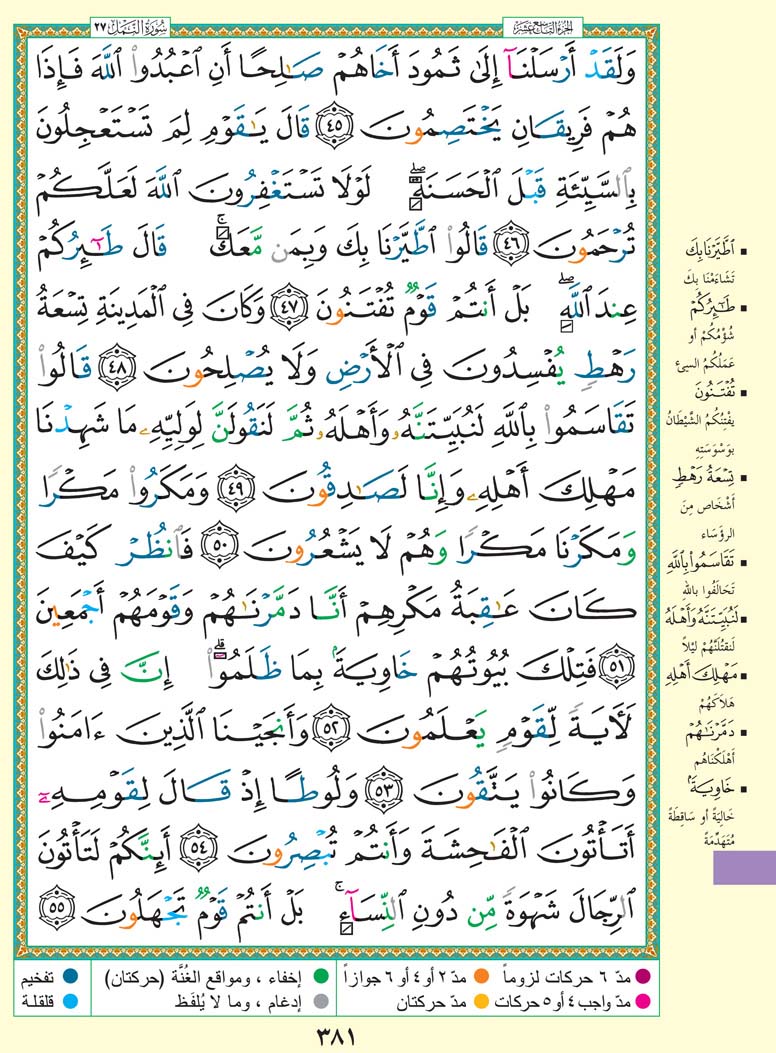 الجزء التاسع عشر
سورة النمل ٢٧
وَلَقَدْ أَرْسَلْنَآ إِلَىٰ ثَمُودَ أَخَاهُمْ صَـٰلِحًا أَنِ ٱعْبُدُوا۟ ٱللَّهَ فَإِذَا
هُمْ فَرِيقَانِ يَخْتَصِمُونَ ٤٥ قَالَ يَـٰقَوْمِ لِمَ تَسْتَعْجِلُونَ
بِٱلسَّيِّئَةِ قَبْلَ ٱلْحَسَنَةِ ۖ لَوْلَا تَسْتَغْفِرُونَ ٱللَّهَ لَعَلَّكُمْ
تُرْحَمُونَ ٤٦ قَالُوا۟ ٱطَّيَّرْنَا بِكَ وَبِمَن مَّعَكَ ۚ قَالَ طَـٰٓئِرُكُمْ
عِندَ ٱللَّهِ ۖ بَلْ أَنتُمْ قَوْمٌ تُفْتَنُونَ ٤٧ وَكَانَ فِى ٱلْمَدِينَةِ تِسْعَةُ
رَهْطٍ يُفْسِدُونَ فِى ٱلْأَرْضِ وَلَا يُصْلِحُونَ ٤٨ قَالُوا۟
تَقَاسَمُوا۟ بِٱللَّهِ لَنُبَيِّتَنَّهُۥ وَأَهْلَهُۥ ثُمَّ لَنَقُولَنَّ لِوَلِيِّهِۦ مَا شَهِدْنَا
مَهْلِكَ أَهْلِهِۦ وَإِنَّا لَصَـٰدِقُونَ ٤٩ وَمَكَرُوا۟ مَكْرًا
وَمَكَرْنَا مَكْرًا وَهُمْ لَا يَشْعُرُونَ ٥٠ فَٱنظُرْ كَيْفَ
كَانَ عَـٰقِبَةُ مَكْرِهِمْ أَنَّا دَمَّرْنَـٰهُمْ وَقَوْمَهُمْ أَجْمَعِينَ
٥١ فَتِلْكَ بُيُوتُهُمْ خَاوِيَةًۢ بِمَا ظَلَمُوٓا۟ ۗ إِنَّ فِى ذَٰلِكَ
لَـَٔايَةً لِّقَوْمٍ يَعْلَمُونَ ٥٢ وَأَنجَيْنَا ٱلَّذِينَ ءَامَنُوا۟
وَكَانُوا۟ يَتَّقُونَ ٥٣ وَلُوطًا إِذْ قَالَ لِقَوْمِهِۦٓ
أَتَأْتُونَ ٱلْفَـٰحِشَةَ وَأَنتُمْ تُبْصِرُونَ ٥٤ أَئِنَّكُمْ لَتَأْتُونَ
ٱلرِّجَالَ شَهْوَةً مِّن دُونِ ٱلنِّسَآءِ ۚ بَلْ أَنتُمْ قَوْمٌ تَجْهَلُونَ ٥٥
▪ ٱطَّيَّرْنَا بِكَ
تَشَاءَمْنَا بِكَ
▪ طَـٰٓئِرُكُمْ
شُؤْمُكُمْ أو
عَمَلُكُمُ السيئ
▪ تُفْتَنُونَ
يَفْتِنُكُمُ الشَّيْطَانُ
بوَسْوَسَتِهِ
▪ تِسْعَةُ رَهْطٍ
أَشْخَاص مِنَ
الرؤَسَاء
▪ تَقَاسَمُوا۟ بِٱللَّهِ
تَحَالَفُوا بالله
▪ لَنُبَيِّتَنَّهُۥ وَأَهْلَهُۥ
لَنقْتُلَنَّهُمْ ليْلاً
▪ مَهْلِكَ أَهْلِهِۦ
هَلَاكَهُمْ
▪ دَمَّرْنَـٰهُمْ
أَهْلَكْنَاهُم
▪ خَاوِيَةًۢ
خَالِيَةً أو سَاقِطَةً
مُتَهَدِّمَةً
مدّ ٦ حركات لزوماً
مدّ ٢ أو ٤ أو ٦ جوازاً
إخفاء ، ومواقع الغُنَّة (حركتان)
تفخيم
مدّ واجب ٤ أو ٥ حركات
مدّ حركتان
إدغام ، وما لا يُلفَظ
قلقلة
٣٨١